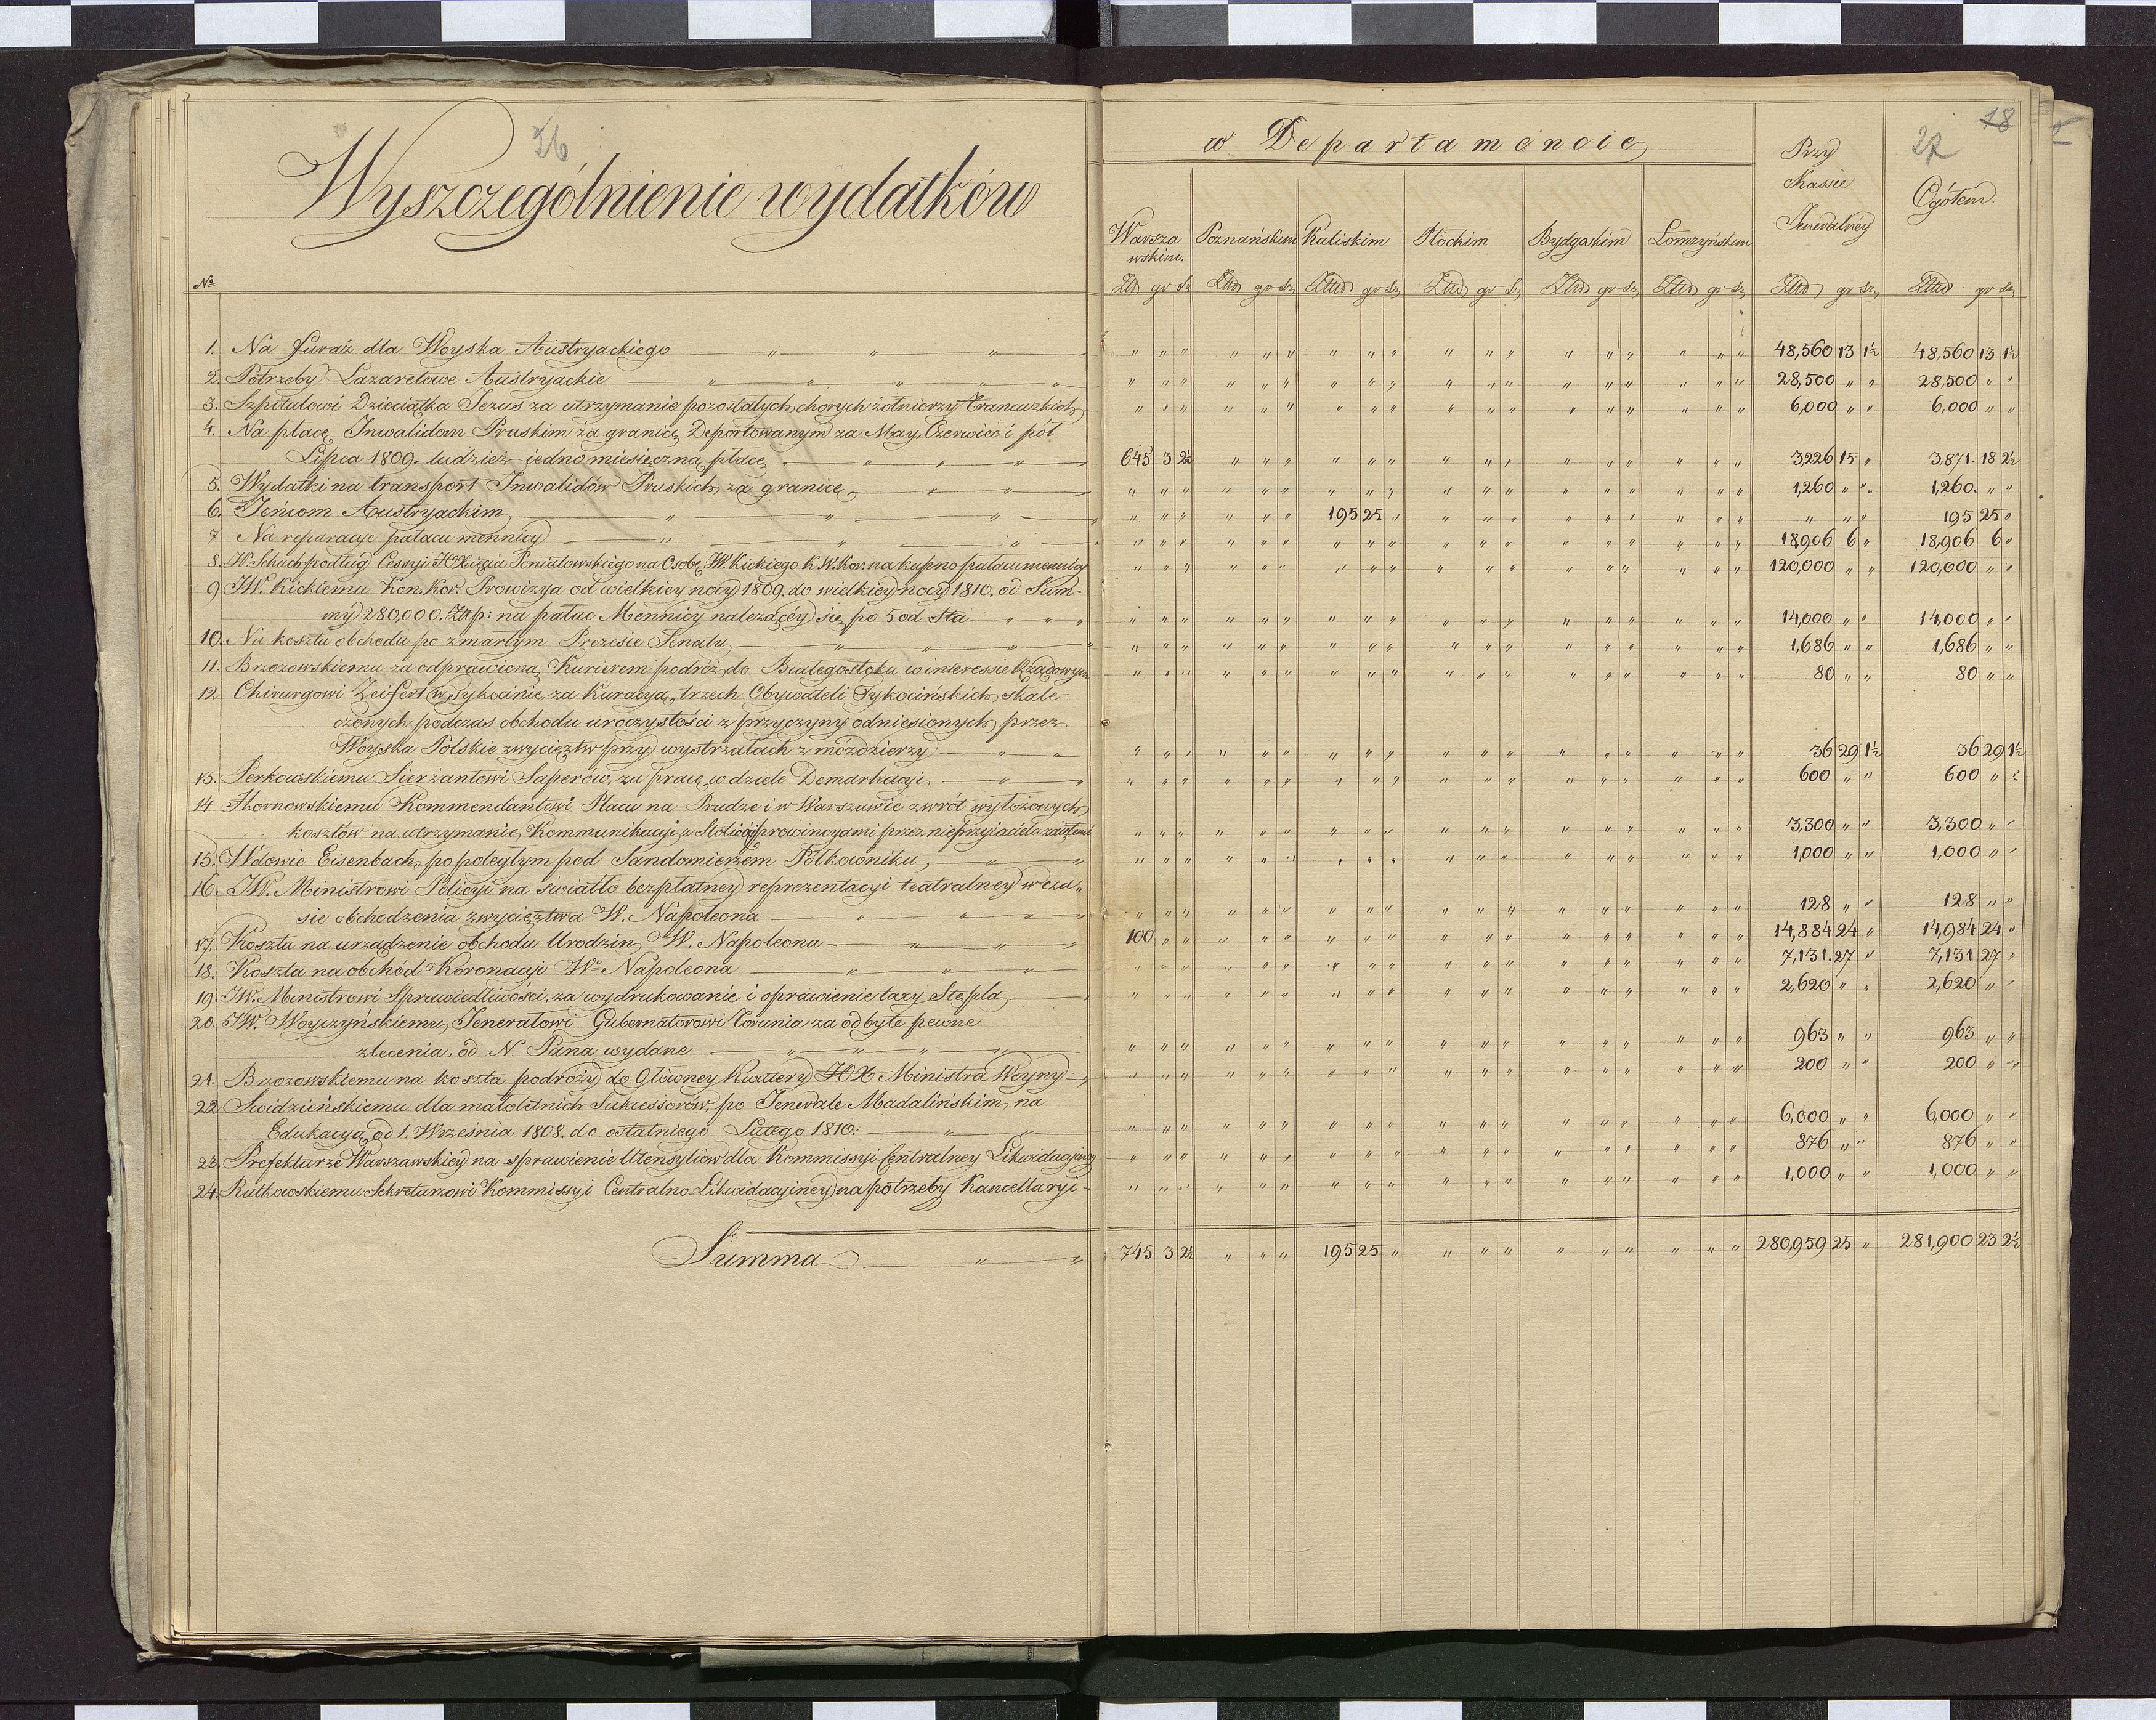 26
Wyszczególnienie wydatków
w Departamencie
Przy Kassie Jeneralney
27
18
Ogółem.
Warszawskim. Poznańskim Kaliskim Płockim Bydgoskim Łomżyńskim
No
Złtd gr sz Złtd gr sz Złtd gr sz Złtd gr sz Złtd gr sz Złtd gr sz Złtd gr sz Złtd gr sz
1. Na furaż dla Woyska Austryackiego " " " 48,560 13 1½ 48,560 13 1½
2. Potrzeby Lazaretowe Austryackie " " " 28,500 " " 28,500 " "
3. Szpitalowi Dzieciątka Jezus za utrzymanie pozostałych chorych żołnierzy Francuzkich 6,000 " " 6,000 " "
4. Na płacę Inwalidom Pruskim za granicę Deportowanym za May, Czerwiec i pół
Lipca 1809. tudzież iednomiesięczną płacę 645 3 2½ 3226 15 " 3,871. 18 2½
5. Wydatki na transport Inwalidów Pruskich za granicę 1,260 " " 1,260. " "
6. Jeńcom Austryackim 195 25 " " " " 195 25 "
7 Na reparacye pałacu mennicy 18,906 6 " 18,906 6 "
8. W. Schuch podług Cessyi JOXięcia Poniatowskiego na Osobę JW. Kickiego K.W.Kor. na kupno pałacu mennicy 120,000 " " 120,000 " "
9 JW. Kickiemu Kon. Kor. Prowizya od wielkiey nocy 1809. do wielkiey nocy 1810. od Sum-
my 280,000. Złtp: na pałac Mennicy należącéy się, po 5 od Sta 14,000 " " 14,000 " "
10. Na koszta obchodu po zmarłym Prezesie Senatu 1,686 " " 1,686 " "
11. Brzozowskiemu za odprawioną Kurierem podróż do Białegostoku w interessie Rządowym 80 " " 80 " "
12. Chirurgowi Zeifert w Tykocinie, za Kuracyą trzech Obywateli Tykocińskich skale-
czonych podczas obchodu uroczystości z przyczyny odniesionych przez
Woyska Polskie zwycięztw przy wystrzałach z moździerzy 36 29 1½ 36 29 1½
13. Perkowskiemu Sierżantowi Saperów, za pracę w dziele Demarkacyi. 600 " " 600 " "
14 Hornowskiemu Kommendantowi Placu na Pradze i w Warszawie zwrót wyłożonych
kosztów na utrzymanie Kommunikacyi z Stolicą prowincyami przez nieprzyiaciela zaiętemi 3,300 " " 3,300 " "
15. Wdowie Eisenbach, po poległym pod Sandomierzem Półkowniku 1,000 " " 1,000 " "
16. JW. Ministrowi Policyi na światło bezpłatney reprezentacyi teatralney w cza-
sie obchodzenia zwycięztwa W. Napoleona 128 " " 128 " "
17. Koszta na urządzenie obchodu Urodzin W. Napoleona 100 " " 14,884 24 " 14,984 24 "
18. Koszta na obchód Koronacyi Wo Napoleona 7,131. 27 " 7,131 27 "
19. JW. Ministrowi Sprawiedliwości, za wydrukowanie i oprawienie taxy Stępla 2,620 " " 2,620 " "
20. JW. Woyczyńskiemu Jenerałowi Gubernatorowi Torunia za odbyte pewne
zlecenia, od N. Pana wydane 963 " " 963 " "
21. Brzozowskiemu na koszta podróży do Główney Kwatery JOX Ministra Woyny 200 " " 200 " "
22 Swidzieńskiemu dla małoletnich Sukcessorów, po Jenerale Madalińskim na
Edukacyą od 1. Września 1808. do ostatniego Lutego 1810. 6,000 " " 6,000 " "
23. Prefekturze Warszawskiey na sprawienie Utensyliów dla Kommissyi Centralney Likwidacyiney 876 " " 876 " "
24. Rutkowskiemu Sekretarzowi Kommissyi Centralno Likwidacyiney na potrzeby Kancellaryi 1,000 " " 1,000 " "
Summa 745 3 2½ " " " 195 25 " 280,959 25 " 281,900 23 2½